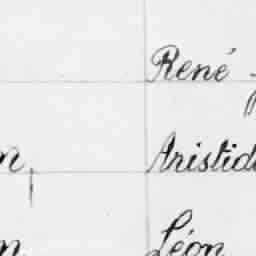 René
Aristid
Léon